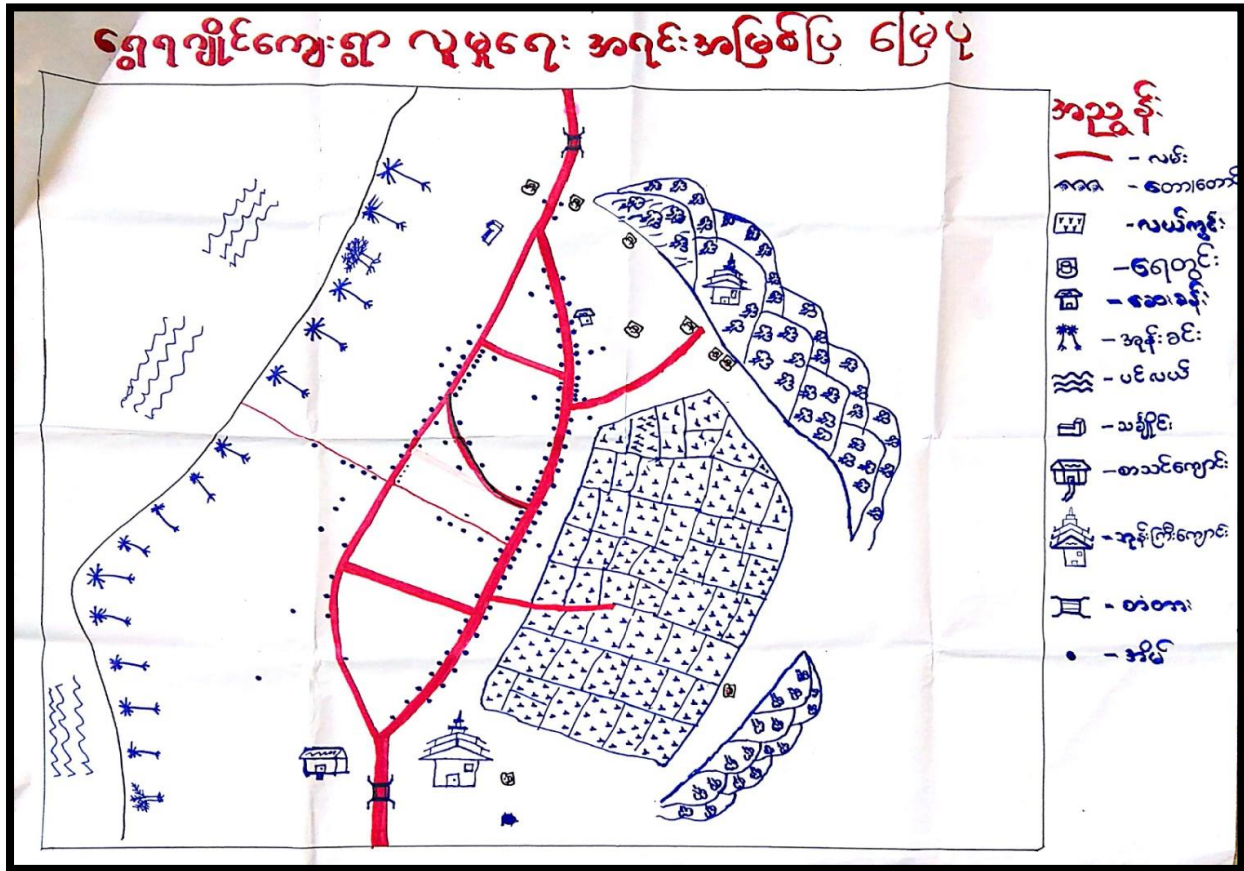 ရွှေရဂျိုင်ကျေးရွာ လူမှုရေး အရင်းအမြစ်ပြ မြေပုံ
အညွှန်း
- လမ်း
- တောတောင်
- လယ်ကွင်း
- ရေတွင်း
- ဆေးခန်း
- အုန်းခင်း
- ပင်လယ်
- သင်္ချိုင်း
- စာသင်ကျောင်း
- ဘုန်းကြီးကျောင်း
- တံတား
- အိမ်